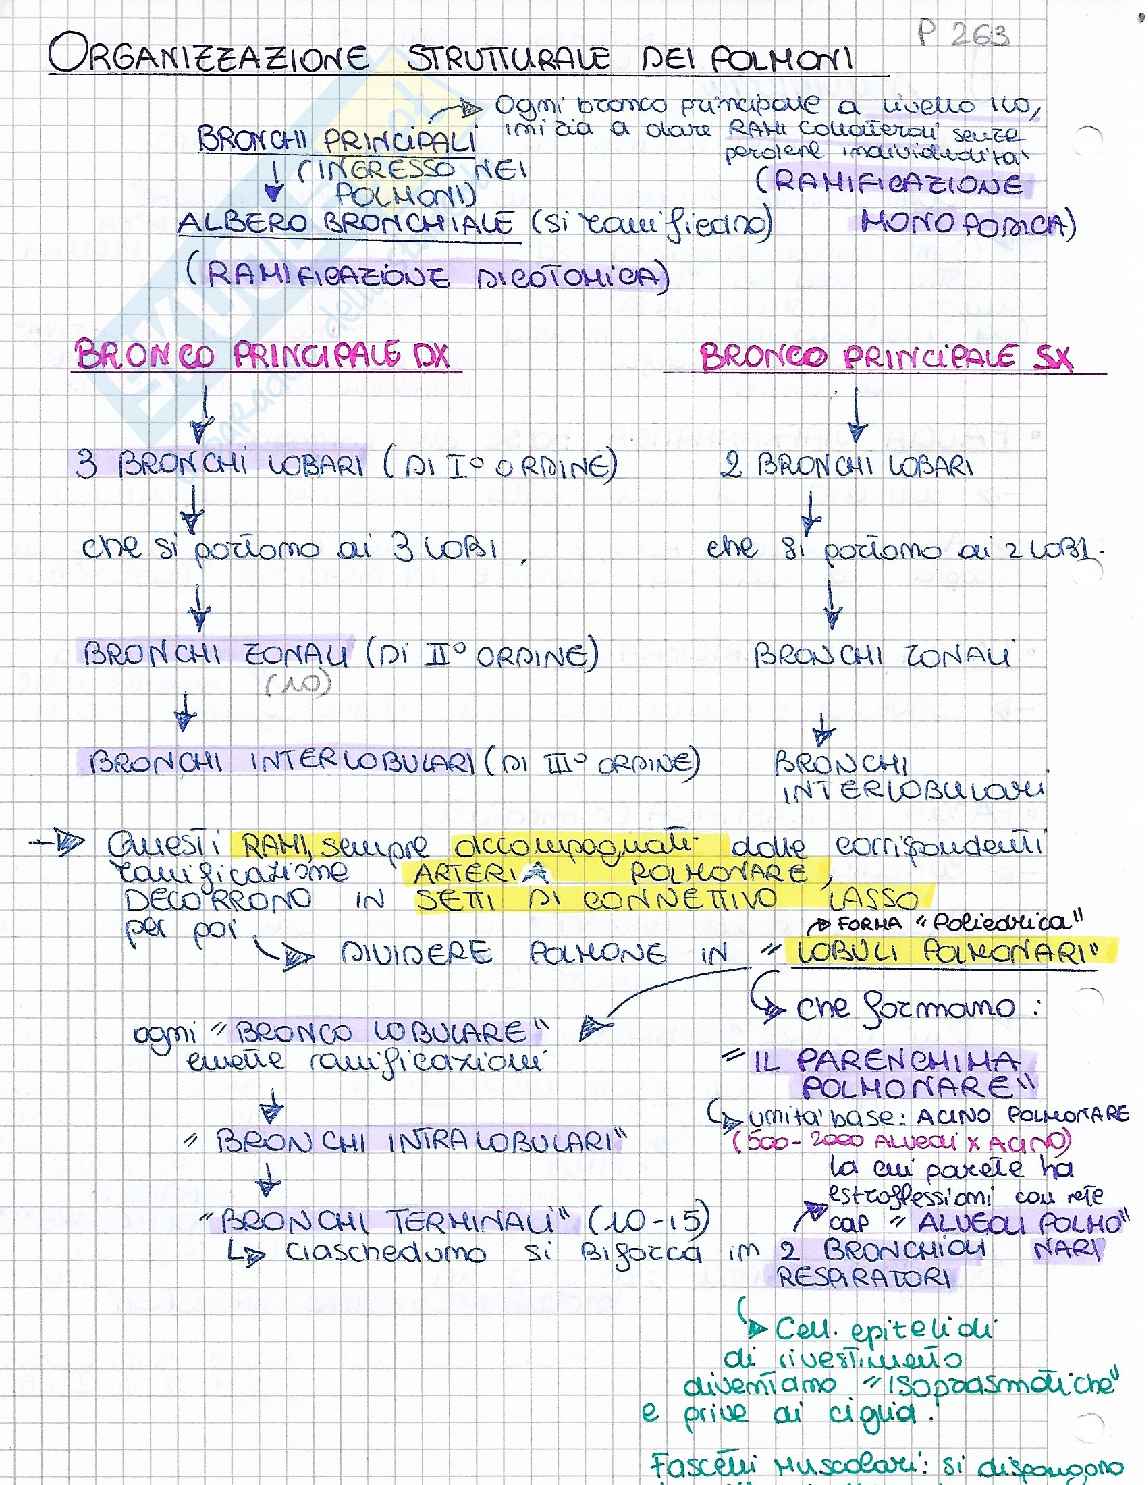 P 263
ORGANIZZAZIONE STRUTTURALE DEI POLMONI
Ogni bronco principale a livello ilo,
BRONCHI PRINCIPALI
inizia a dare RAMI collaterali senza
perdere individualità
(INGRESSO NEI
POLMONI)
(RAMIFICAZIONE
MONOPODICA)
ALBERO BRONCHIALE (si ramificano)
(RAMIFICAZIONE DICOTOMICA)
BRONCO PRINCIPALE DX
BRONCO PRINCIPALE SX
3 BRONCHI LOBARI (DI I° ORDINE)
2 BRONCHI LOBARI
che si portano ai 3 LOBI.
che si portano ai 2 LOBI.
BRONCHI ZONALI (Di II° ORDINE)
(10)
BRONCHI ZONALI
BRONCHI INTERLOBULARI (DI III° ORDINE)
BRONCHI
INTERLOBULARI
Questi RAMI, sempre accompagnati dalle corrispondenti
ramificazione ARTERIA POLMONARE,
DECORRONO IN SETTI DI CONNETTIVO LASSO
per poi
FORMA "Poliedrica"
DIVIDERE POLMONE IN "LOBULI POLMONARI"
che formano:
ogni "BRONCO LOBULARE"
emette ramificazioni
"IL PARENCHIMA
POLMONARE"
unità base: ACINO POLMONARE
(500-2000 ALVEOLI X ACINO)
"BRONCHI INTRALOBULARI"
la cui parete ha
estroflessioni con rete
cap "ALVEOLI POLMO"
NARI
"BRONCHI TERMINALI" (10-15)
Ciascheduno si Biforca in 2 BRONCHIOLI
RESPIRATORI
Cell. epiteliali
di rivestimento
diventano "isoprasmatiche"
e prive di ciglia.
Fascetti Muscolari: si dispongono